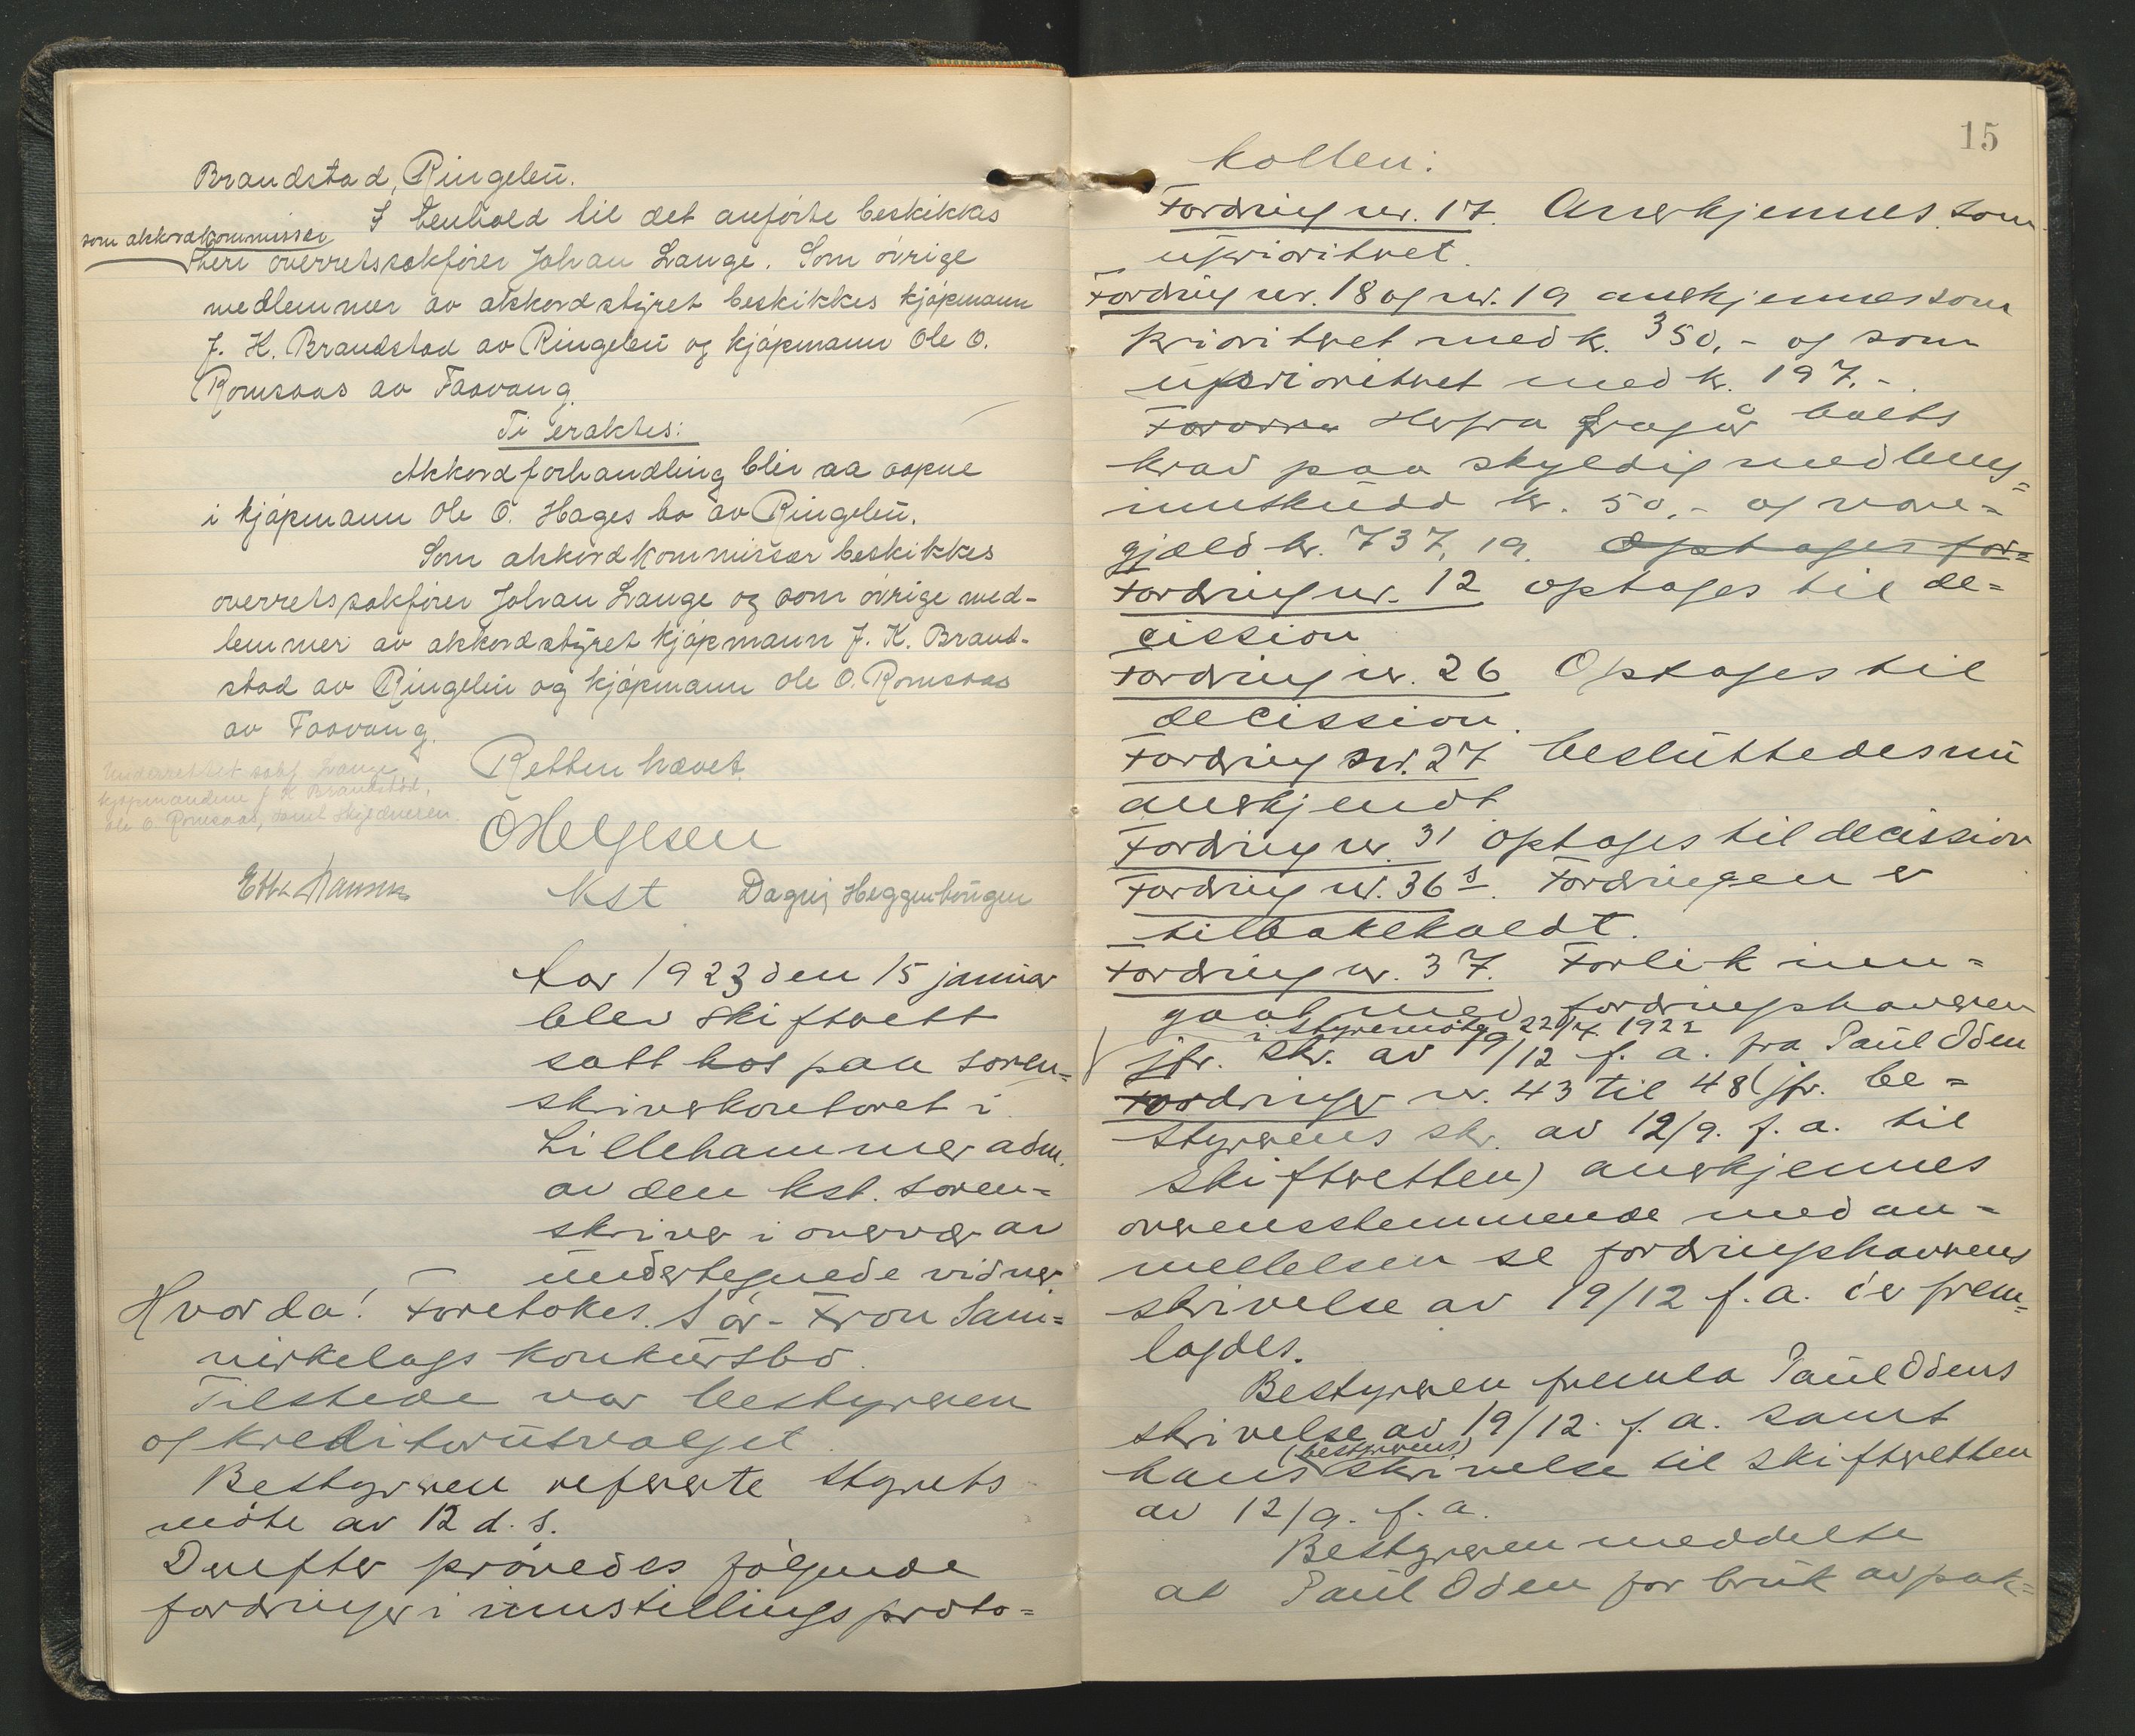 Brandstad, Ringebu.
I henhold til det anførte beskikkes
som akkordkommissær
herr overretssakfører Johan Lange. Som øvrige
medlemmer av akkordstyret beskikkes kjøpmann
J. K. Brandstad av Ringebu og kjøpmann Ole O.
Romsaas av Faavang.
Ti eraktes:
Akkordforhandling blir aa aapne
i kjøpmann Ole O. Hages bo av Ringebu.
Som akkordkommissær beskikkes
overretssakfører Johan Lange og som øvrige med-
lemmer av akkordstyret kjøpmann J. K. Brand-
stad av Ringebu og kjøpmann Ole O. Romsaas
av Faavang.
Retten hævet.
Underrettet sakf. Lange
kjøpmændene J. K. Brandstad,
Ole O. Romsaas, samt skyldneren.
O Helgesen
Ebba Hansen kst Dagny Heggenhougen
Aar 1923 den 15 januar
blev skifterett
satt hos paa soren=
skriverkontoret i
Lillehammer adm.
av den kst. soren=
skriver i overvær av
undertegnede vidner
Hvorda! Foretokes. Sør-Fron Sam=
virkelags konkursbo.
Tilstede var bestyreren
og kreditorutvalget.
Bestyreren refererte styrets
møte av 12 d. s.
Derefter prøvedes følgende
fordringer i innstillingsproto=
15
kollen:
Fordring nr. 17. Anerkjennes som
uprioritert.
Fordring nr. 18 og nr. 19 anerkjennes som
prioritert med kr. 350,- og som
uprioritert med kr. 197,-.
Herfra fragår boets
krav paa skyldig medlems=
innskudd kr. 50,- og vare=
gjæld kr. 737,19. Optages for=
Fordring nr. 12 optages til de=
cission
Fordring nr. 26 Optages til
decission.
Fordring nr. 27 besluttedes nu
anerkjendt
Fordring nr. 31 optages til decission
Fordring nr. 36 s. Fordringen er
tilbakekaldt.
Fordring nr. 37. Forlik inn=
gaat med fordringshaveren
i styremøte 22/4 1922
jfr. skr. av 19/12 f. a. fra Paul Oden
Fordringer nr. 43 til 48 (jfr. be=
styrerens skr. av 12/9. f. a. til
skifteretten) anerkjennes
overensstemmende med an=
meldelsen se fordringshaverens
skrivelse av 19/12 f. a. der frem=
lagdes.
Bestyreren fremla Paul Odens
skrivelse av 19/12. f. a. samt
(bestyrerens)
hans skrivelse til skifteretten
av 12/9. f. a.
Bestyreren meddelte
at Paul Oden for bruk av pak=